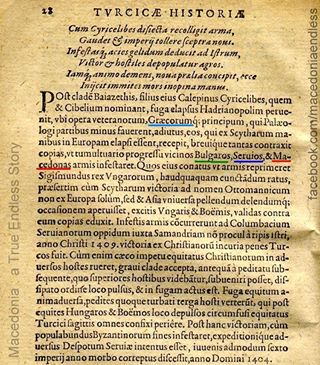 28 TVRCICÆ HISTORIÆ
Cum Cyricelibes disiecta recolligit arma,
Gaudet & imperij tollere sceptra noui.
Infestasq́; acies gelidum deducit ad Istrum,
Victor & hostiles depopulatur agros.
Iamq́; animo demens, noua prælia concipit, ecce
Inijcit immites mors inopina manus.
Post cladē Baiazethis, filius eius Calepinus Cyricelibes, quem
& Cibelium nominant, fuga elapsus Hadrianopolim perue-
nit, vbi opera veteranorum, Græcorumq́; principum, qui Palæo-
logi partibus minus fauerent, adiutus, eos, qui ex Scytharum mani-
bus in Europam elapsi essent, recepit, breuique tantas contraxit
copias, vt tumultuario progressu vicinos Bulgaros, Seruios, & Ma-
cedonas armis infestaret. Quos eius conatus vt armis reprimeret
Sigismundus rex Vngarorum, haudquaquam cunctādum ratus,
præsertim cùm Scytharum victoria ad nomen Ottomannicum
non ex Europa solùm, sed & Asia vniuersa pellendum delendumq́;
occasionem aperuisset, excitis Vngaris & Boëmis, validas contra
eum copias eduxit. Infestis armis occurrerunt ad Columbacium
Seruianorum oppidum iuxta Samandriam nō procul à ripis istri,
anno Christi 1409. victoria ex Christianorū incuria penes Tur-
cos fuit. Cùm enim cæco impetu equitatus Christianorum in ad-
uersos hostes rueret, graui clade accepta, antequā à peditatu sub-
sequente, quo superiores hostibus videbātur, subueniri posset, dissi-
pato ordine loco pulsus, & in fugam actus est. Fuga equitum a-
nimaduersa, pedites quoque turbati terga hosti verterūt, qui post
equites Hungaros & Boëmos loco depulsos circumfusi equitatus
Turcici sagittis omnes confixi periêre. Post hanc victoriam, cùm
populabundus Byzantinorum fines infestaret, expeditionique ad-
uersus Despotum Seruiæ intentus esset, iuuenis admodum sexto
imperij anno morbo correptus discessit, anno Domini 1404.
Macedonia - a True Endless Story
facebook.com/macedoniaendless